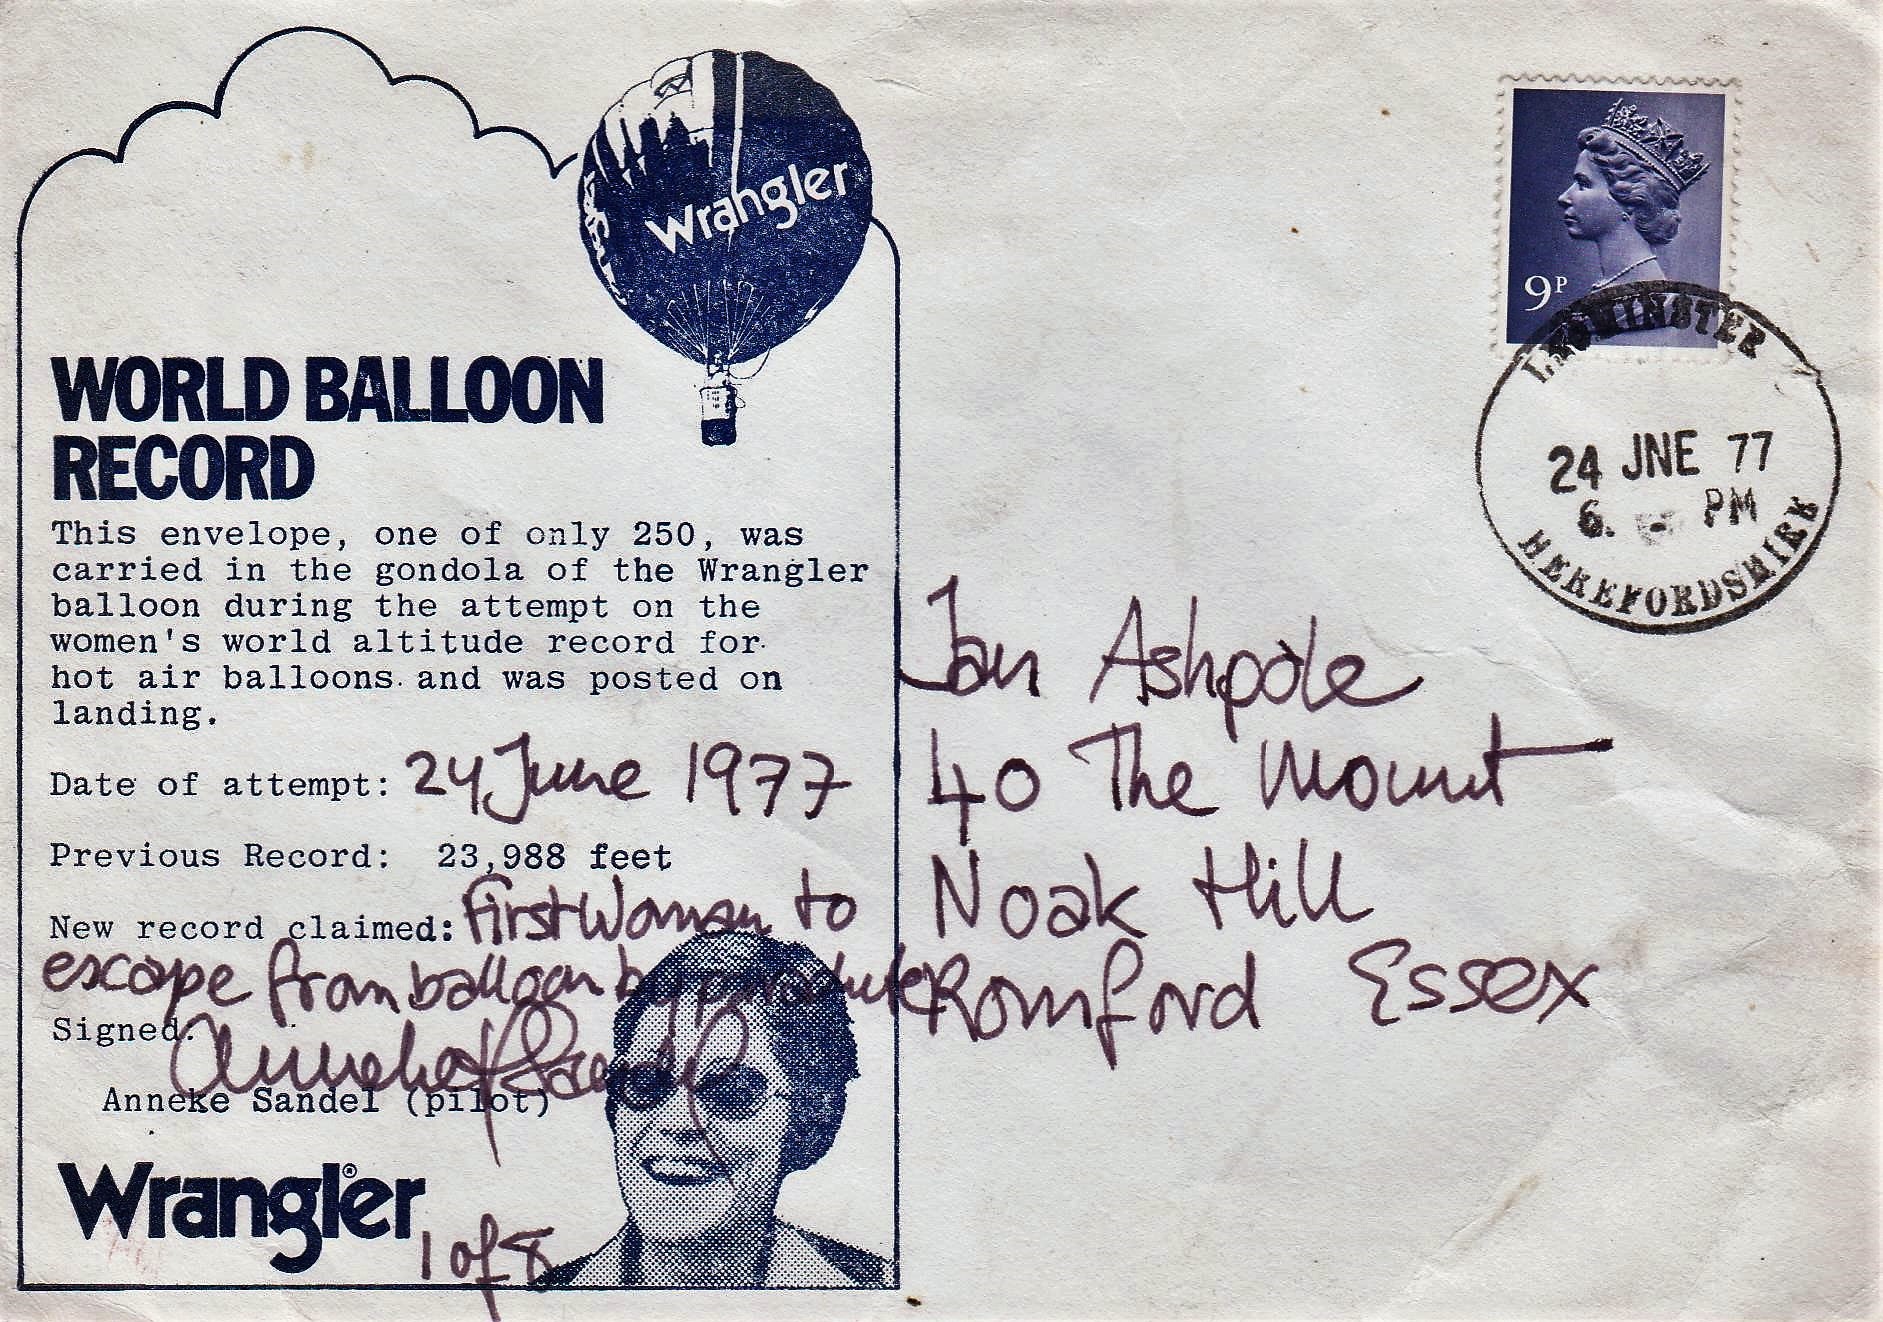 Wrangler
WORLD BALLOON
RECORD
This envelope, one of only 250, was
carried in the gondola of the Wrangler
balloon during the attempt on the
women's world altitude record for
hot air balloons and was posted on
landing.
Date of attempt: 24 June 1977
Previous Record: 23,988 feet
New record claimed: First Woman to
escape from balloon by parachute
Signed: Anneke Sandel
Anneke Sandel (pilot)
Wrangler®
1 of 8
9P
LEOMINSTER
24 JNE 77
6. PM
HEREFORDSHIRE
Jan Ashpole
40 The Mount
Noak Hill
Romford Essex